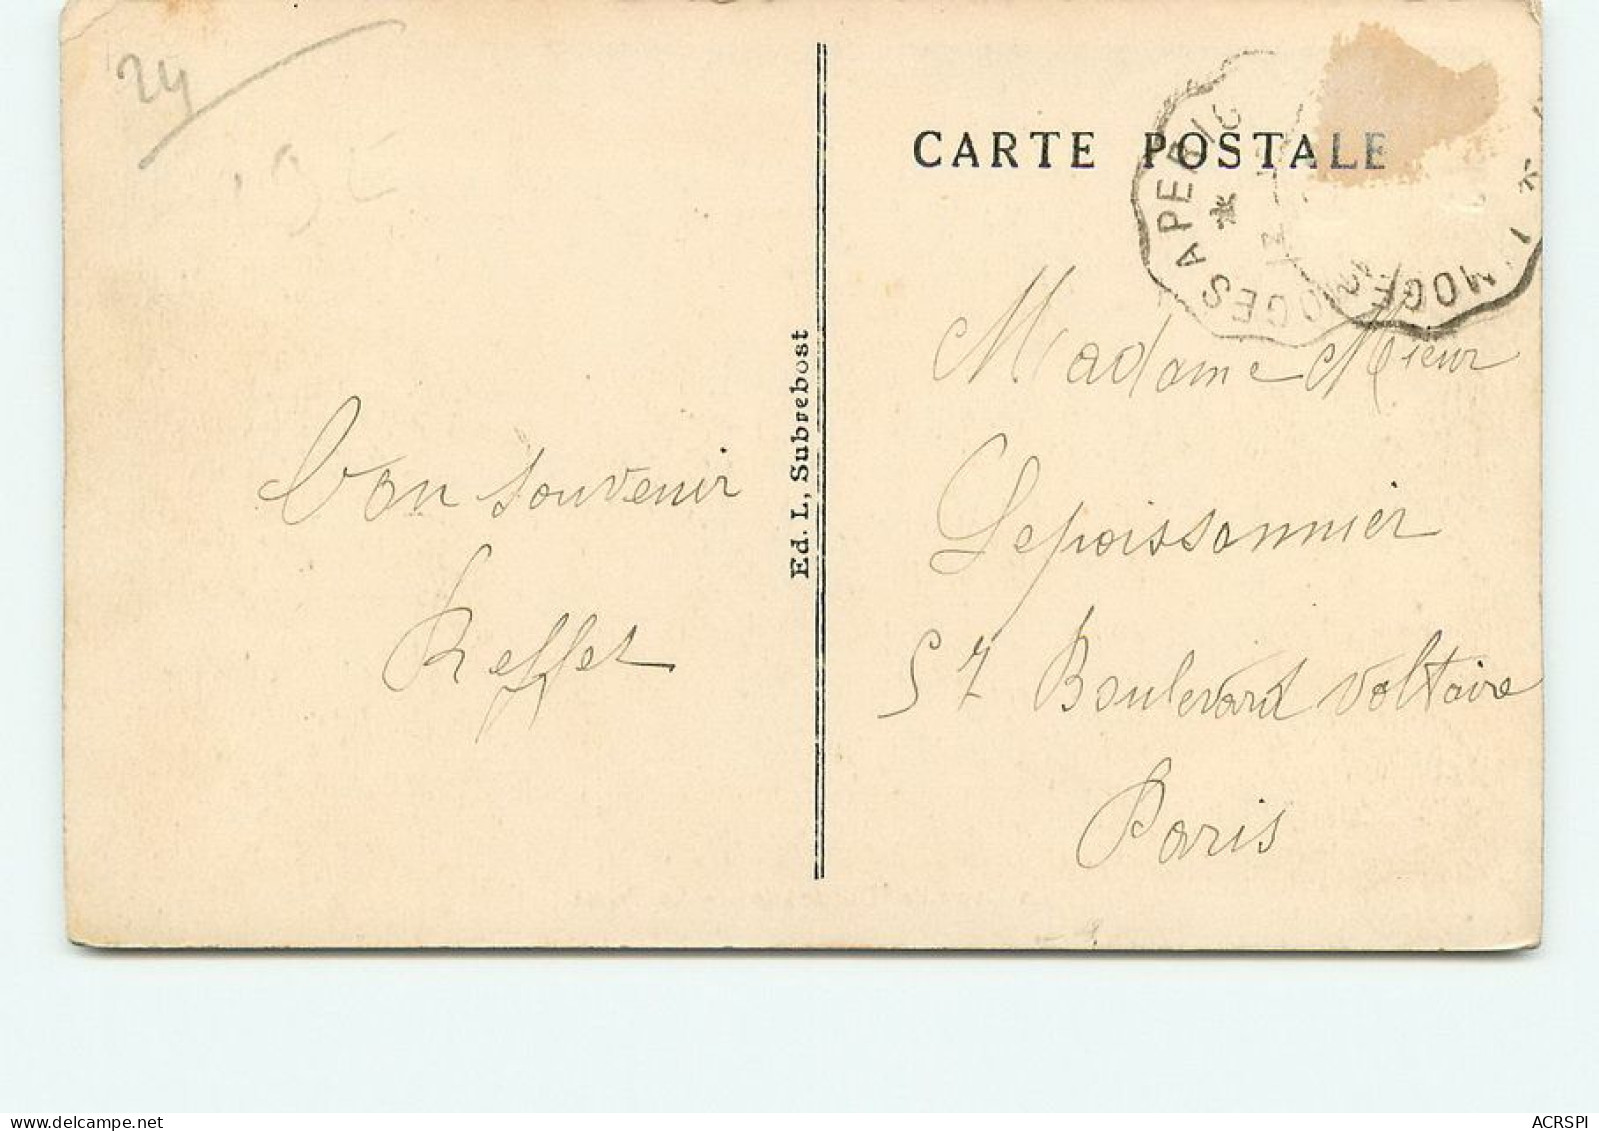 24
CARTE POSTALE
LIMOGES A PERIG
Ed. L, Subrebost
bon souvenir
Reffet
Madame Mieur
Lepoissonnier
57 Boulevard Voltaire
Paris
delcampe.net
ACRSPI